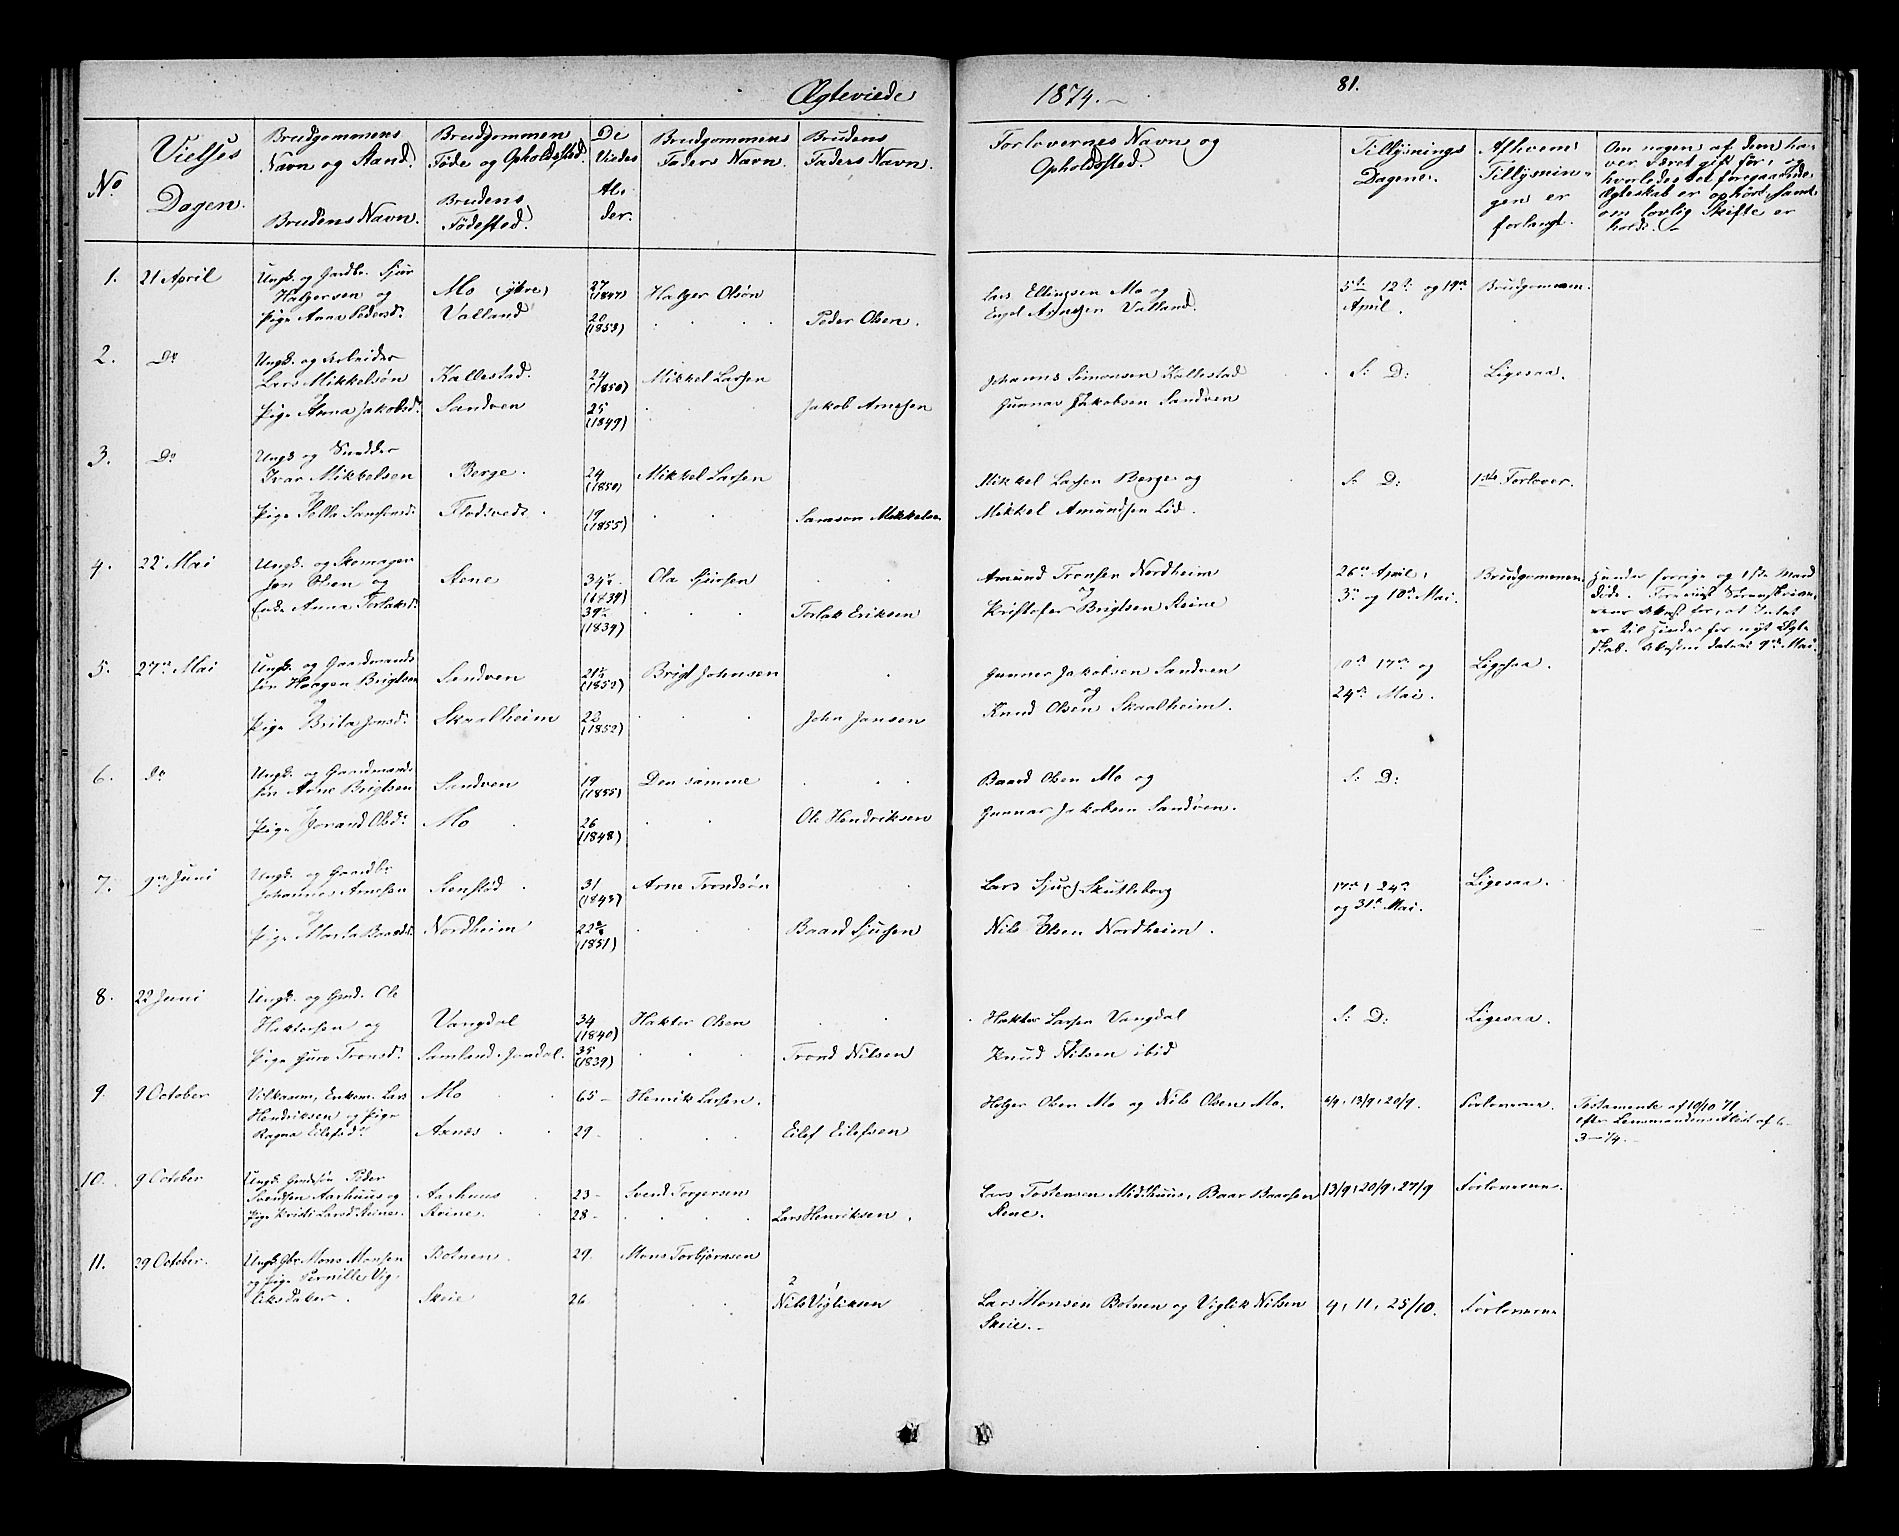 Ægteviede 1874. 81.
No
Vielses Dagen.
Brudgommens Navn og Stand.
Brudens Navn.
Brudgommen Føde og Opholdssted.
Brudens Fødested.
De Viedes Alder.
Brudgommens Faders Navn.
Brudens Faders Navn.
Forlovernes Navn og Opholdssted.
Tillysnings Dagene.
Af hvem Tillysningen er forlangt.
Om nogen af dem har været gift før, og
hvorledes det foregaaende
Ægteskab er ophørt, samt
om lovlig Skifte er
holdt.
1. 21 April Ungk. og Gardbr. Sjur
Halgersen og Mo (ytre) 27 (1847) Halger Olsøn
Pige Anna Pedersd. Valland 20 (1853) Peder Olsen.
Lars Ellingsen Mo og
Valland.
5te 12te og 19de April.
Brudgommen.
2. Do Ungk. og Arbeider
Lars Mikkelsøn Kallestad. 24 (1850) Mikkel Larsen
og
Pige Anna Jakobsd. Sandven 25 (1849) Jakob Arnesen
Johannes Simonsen Kallestad
Gunnar Jakobsen Sandven
S: D: Ligesaa.
3. Do Ungk og Snedker
Ivar Mikkelsen Berge. 24 (1850) Mikkel Larsen
og
Pige Samsonsd. 19 (1855) Samson Mikkelsen
Mikkel Larsen Berge og
Mikkel Amundsen Lid.
S: D: 1ste Forlover.
4. 22 Mai Ungk. og Skomager
Jon Olsen og Stene 34½ (1839) Ola Sjursen
Enke Anna Torlaksd. 34½ (1839) Torlak Eriksen
Amund Tronsen Nordheim
og
Kristofer Brigtsen Steine
26de April,
3de og 10de Mai.
Brudgommen
Hendes forrige og 1ste Mand
død. Foreviist Sorenskriverens
Attest for, at Intet
er til Hinder for nyt Ægteskab.
Attesten dateret 9de Mai.
5. 27de Mai Ungk. og Gaardmands
søn Haagen Brigtsen Sandven 21½ (1852) Brigt Johnsen
og
Pige Brita Jonsd. Skaalheim 22 (1852) John Jansen
Gunnar Jakobsen Sandven
og
Knud Olsen Skaalheim.
10de 17de og
24de Mai.
Ligesaa.
6. Do Ungk. og Gaardmands
søn Arne Brigtsen Sandven 19 (1855) Den samme
og
Pige Jorand Olsd. Mo 26 (1848) Ole Hendriksen
Baard Olsen Mo og
Gunnar Jakobsen Sandven.
S: D:
7. 9de Juni Ungk. og Gaardbr.
Johannes Arnesen 31 (1843) Arne Trondsøn
og
Pige Marta Baardsd. Nordheim (1851) Baard Sjursen
Lars Sjurs. Skutleberg
Nils Olsen Nordheim.
17de, 24de
og 31te Mai.
Ligesaa.
8. 22 Juni Ungk. og Gmd. Ole
Haktorsen og Vangdal 34 (1840) Haktor Olsen
Pige Guro Tronsd. Samland, Jondal. 35 (1839) Trond Nilsen
Haktor Larsen Vangdal
Knud Nilsen ibid
S: D: Ligesaa.
9. 9 October Vilkaarm, Enkem. Lars Mo 65 – Henrik Larsen.
Hendriksen og Pige
Ragna Eilefsd. Axnes 29 – Eilef Eilefsen
Halger Olsen Mo og Nils Olsen Mo.
6/9, 13/9, 20/9. Forloverne.
Testamente af 10/10 71
efter Lensmandens Attest af 6–
3–74.–
10. 9 October Ungk. Gmdssøn Peder
Svendsen Aarhuus og Aarhuus 23 – Svend Torgersen
Pige Kristi Larsd Steine. Steine. 28 – Lars Henriksen.
Lars Tostensen Midthuus, Baar Baarsen
Stene.
13/9, 20/9, 27/9 Forloverne.
11. 29 October. Ungk. Gbr Mons Monsen Botnen. 29. Mons Torbjørnsen
og Pige Pernille Vig-
liksdatter. Skeie 26 Nils Vigliksen
2 1
Lars Monsen Botnen og Viglik Nilsen
Skeie.–
4, 11, 25/10. Forloverne